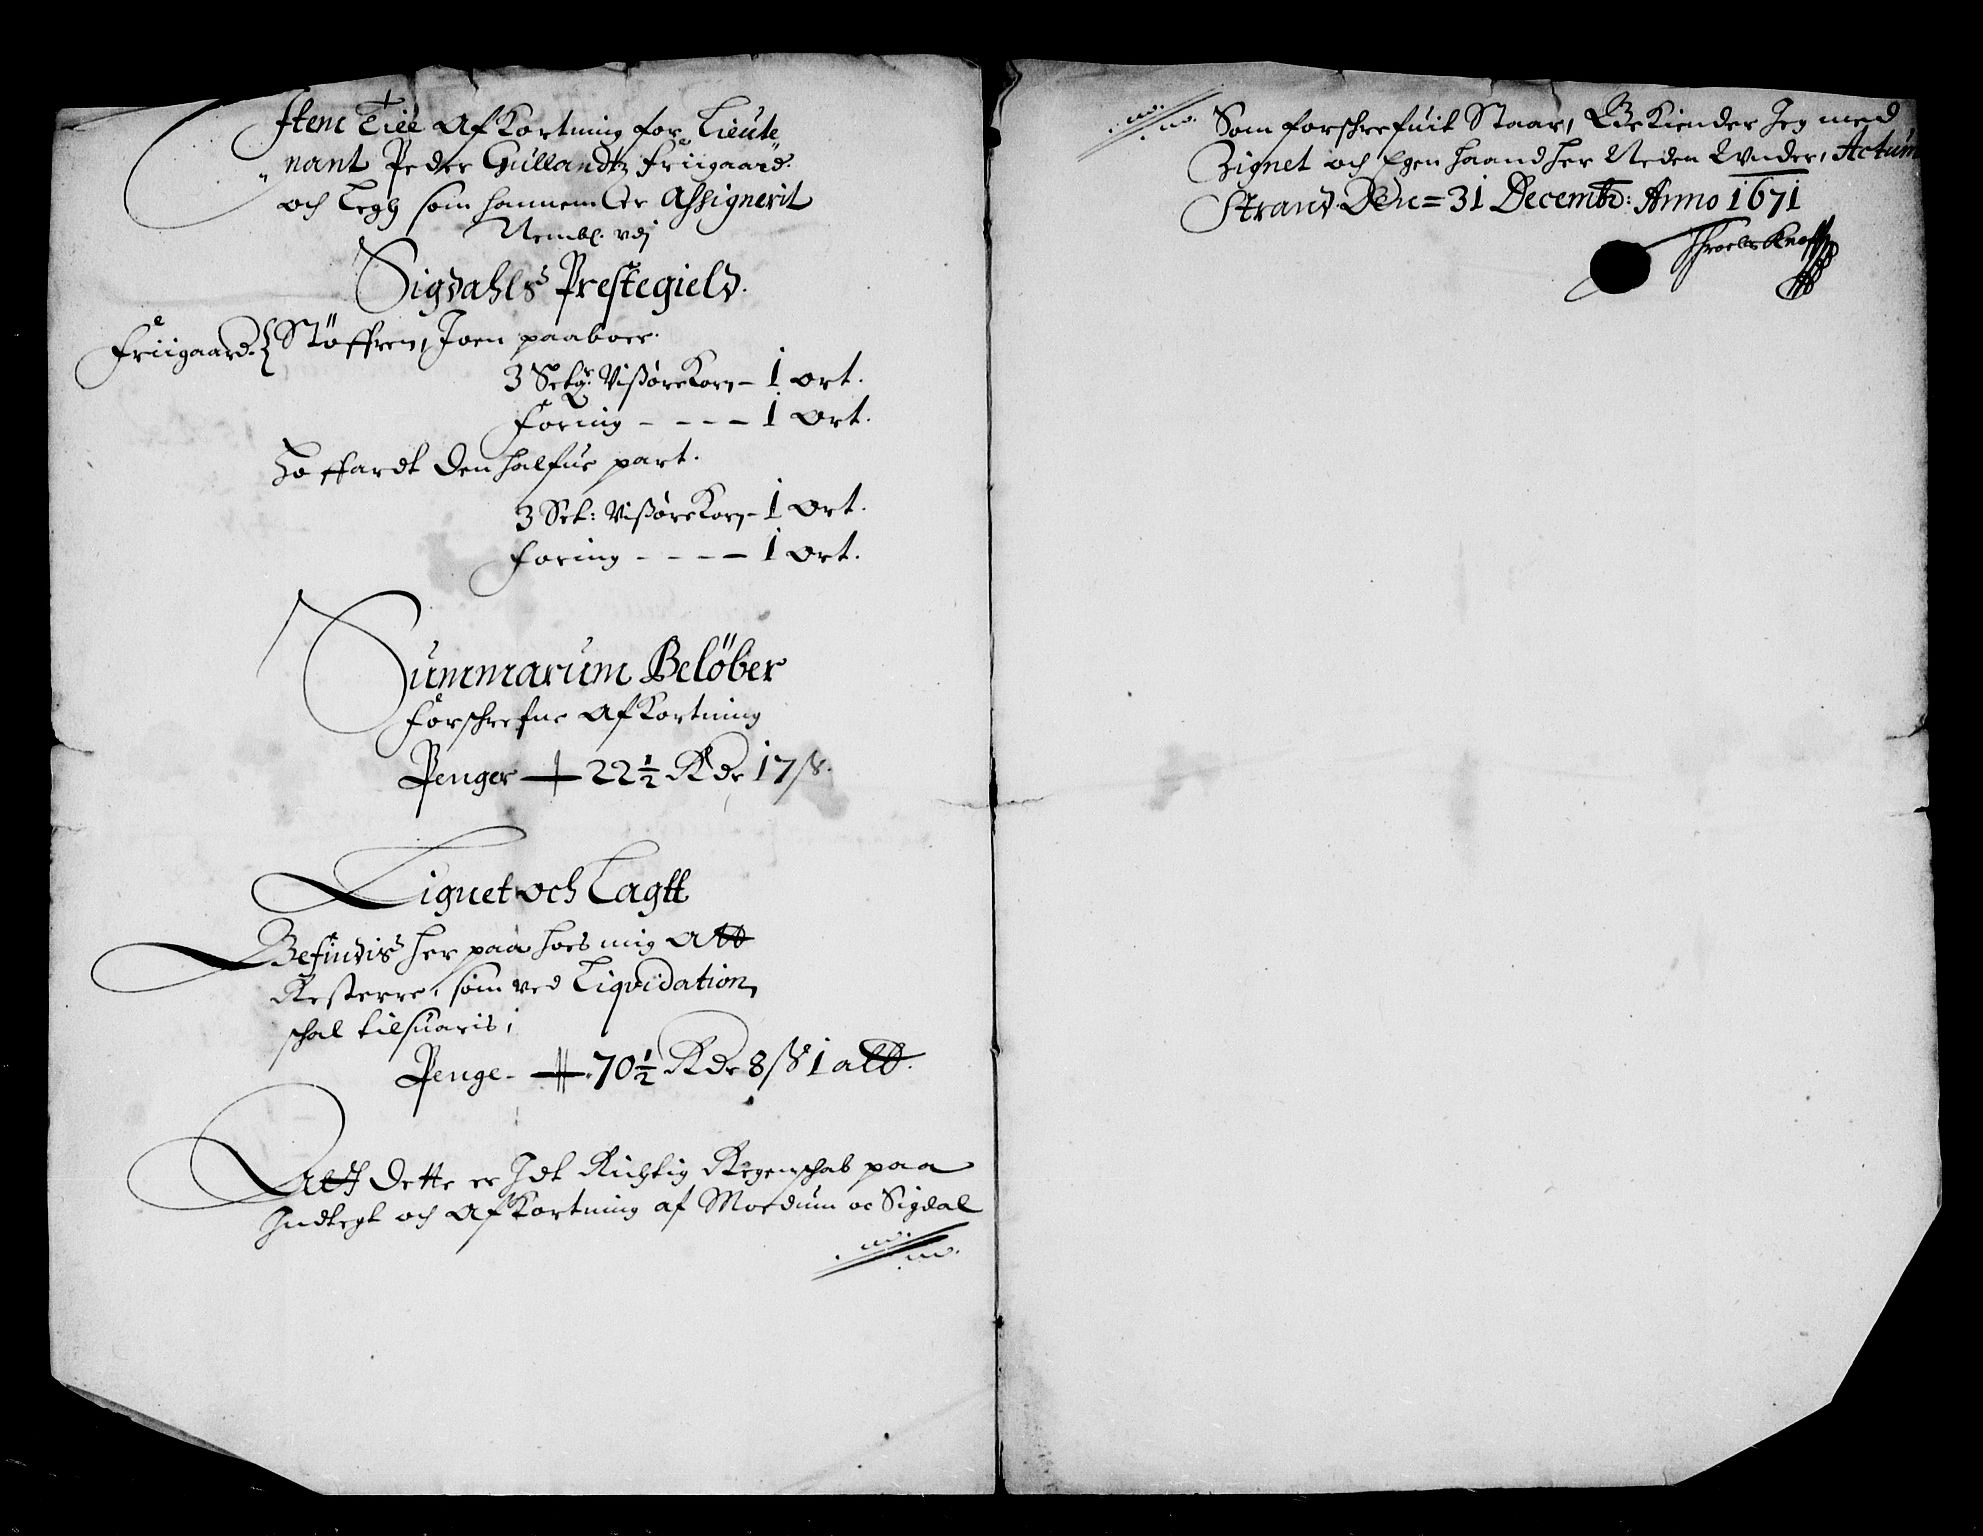 stene Till Afkortning for Lieute„
„nant Peder Gullandtz friigaard.
och Legh som hannem Er Assignerit
Nembl.
Sigdahls Prestegield.
Friigaard. { Støffren, Joen paaboer.
3 Set: Vißøre Korn – 1 ort.
Foring – – – – 1 ort.
den halfue part.
3 Set: Vißøre Korn – 1 ort.
Foring – – – – 1 ort.
Summarum Belöber
Forschrefne Afkortning
Penger — 22½ Rdr 17 ß.
Lignet och Lagtt
Befindis her paa hoes mig Att
Resterre, som ved Liqvidation
schal tilsuaris;
Penge – 70½ Rdr 8 ß 1 alb.
Att dette er Idt Richtig Regenschab paa
Indtegt och Afkortning af Moedum oc Sigdal
Som forschrefuit Staar, Bekiender Jeg med
Zignet och Egen haand her Neden Under, Actum
Strand Den = 31 Decemb: Anno 1671
Throels Knoff